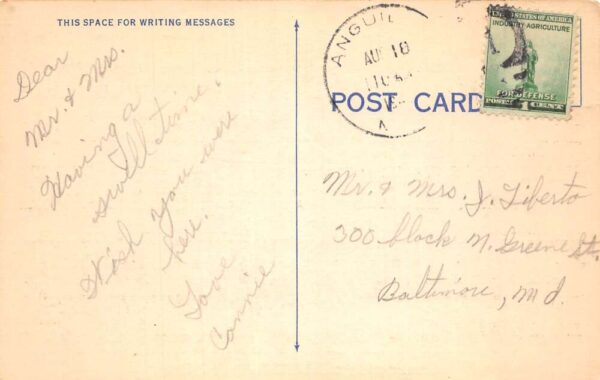 THIS SPACE FOR WRITING MESSAGES
Dear
Mr. & Mrs.
Having a
swell time.
Wish you were
here.
Love
Connie
ANGUIL
AUG 18
POST CARD
UNITED STATES OF AMERICA
INDUSTRY AGRICULTURE
FOR DEFENSE
POSTAGE 1 CENT
Mr. & Mrs. J. Liberto
300 block N. Greene St.
Baltimore, Md.